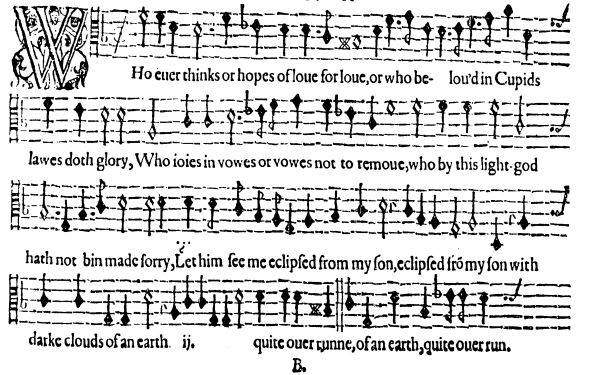 WHo euer thinks or hopes of loue for loue, or who be- lou'd in Cupids
lawes doth glory, Who ioies in vowes or vowes not to remoue, who by this light-god
hath not bin made sorry, Let him see me eclipsed from my son, eclipsed frō my son with
darke clouds of an earth ij. quite ouer runne, of an earth, quite ouer run.
B.